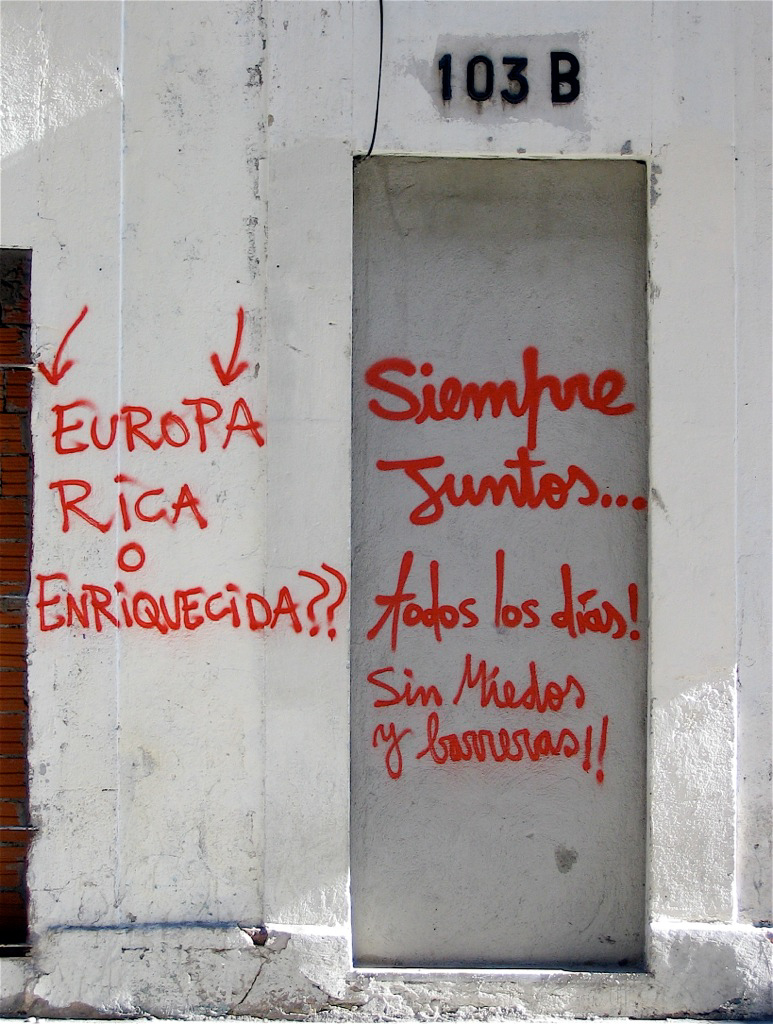 103 B
EUROPA
RiCA
O
ENRiQUECiDA??
Siempre
Juntos...
todos los días!
Sin Miedos
y barreras!!